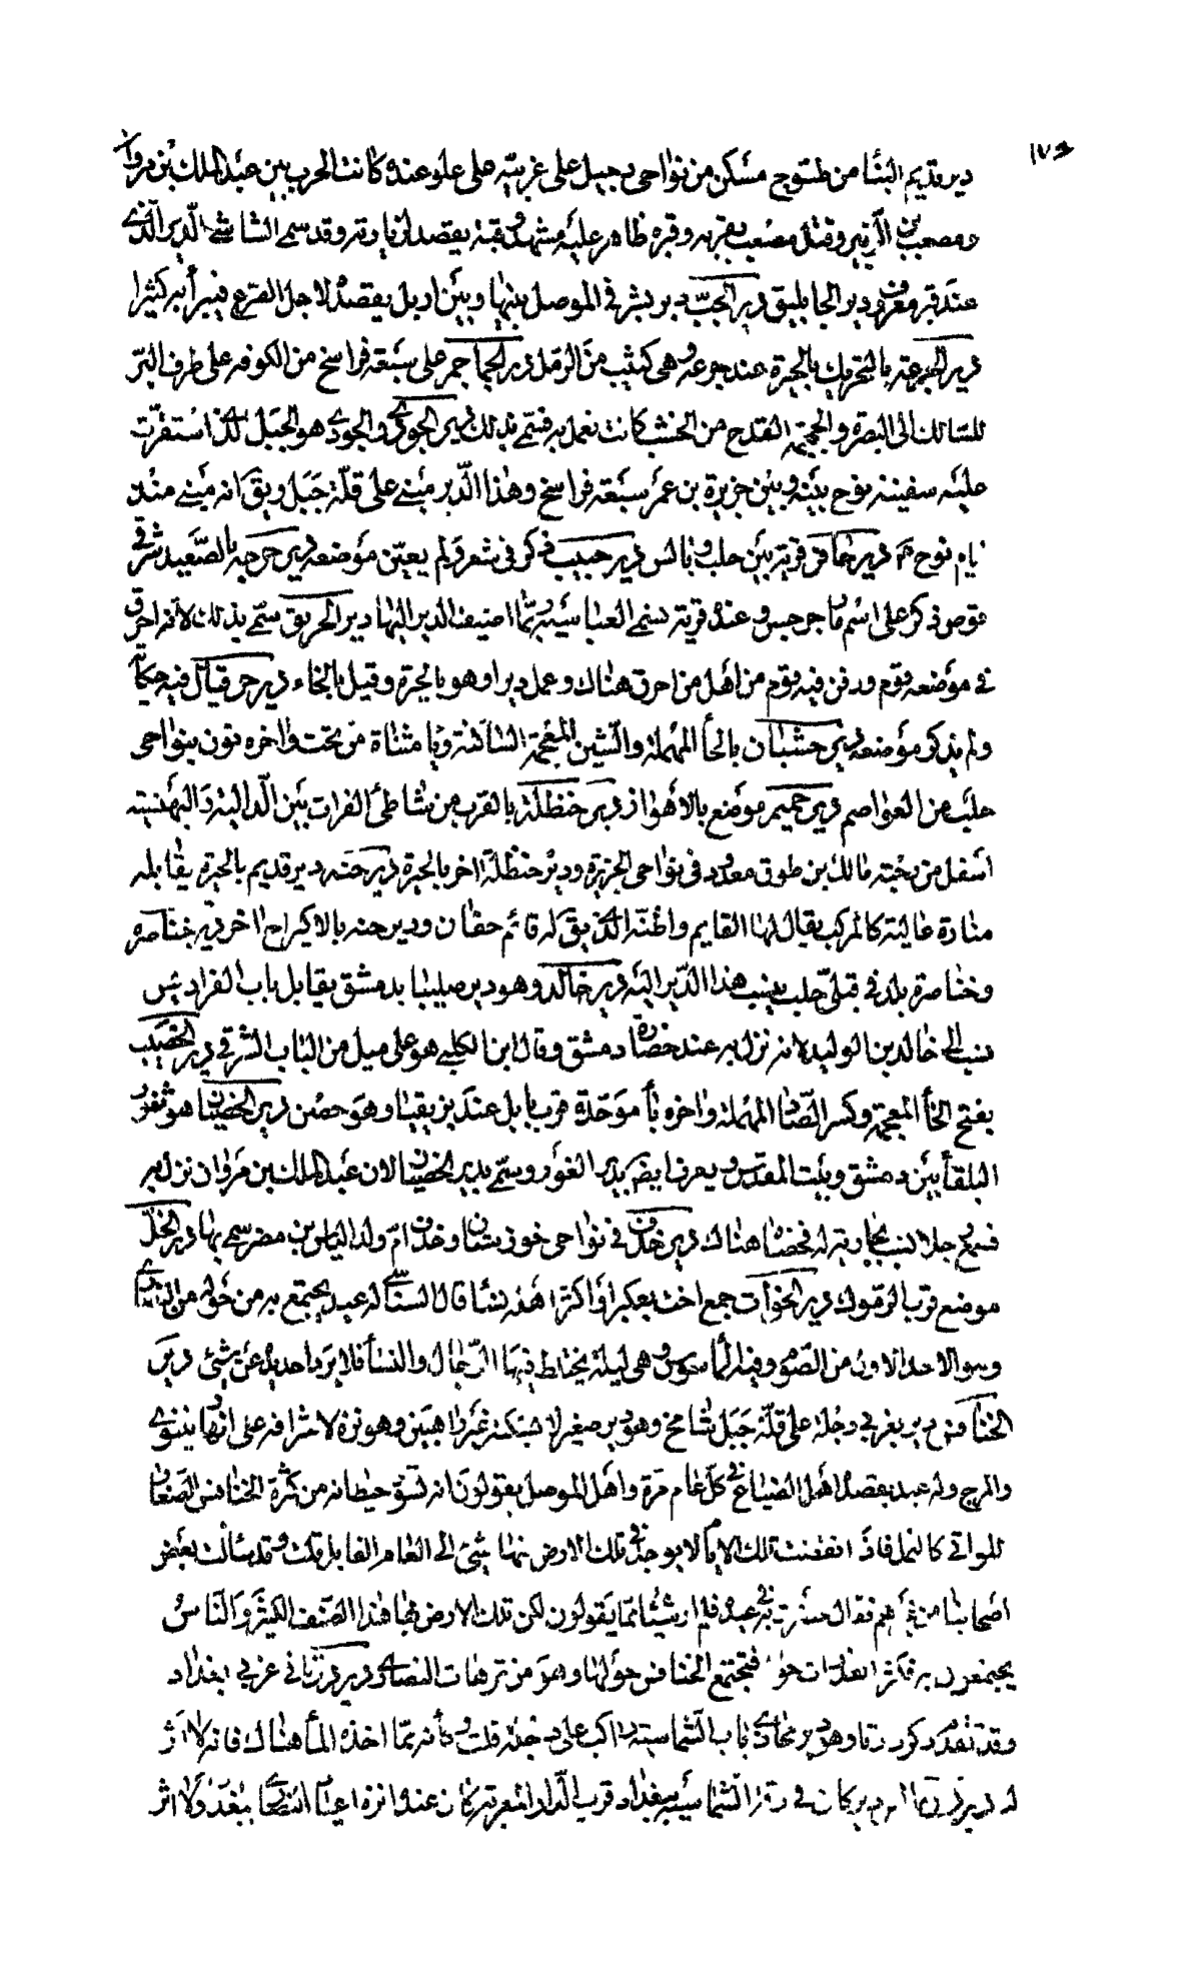 ١٧٤
دير قديم البنا من طسوج مسكن من نواحى دجيل على غربيه على علو عنده كانت الحرب بين عبد الملك بن مروان
ومصعب بن الزبير وقتل مصعب بقربه وقبره ظاهر عليه مشهد وقبة يقصد لزيارته وقد سمى الشابشتى الدير الذى
عند قبر معروف دير الجاثليق دير الجب دير بشرقى الموصل بينها وبين اربل يقصده لاجل الصرع فيبرأ به كثير
دير الجرعة بالتحريك بالحيرة عند جرعه وهى كثيب من الرمل دير الجماجم على سبعة فراسخ من الكوفه على طرف البر
للسالك الى البصرة والجمجمة القدح من الخشب كانت تعمل به فسمى بذلك دير الجودى والجودى هو الجبل الذى استقرت
عليه سفينة نوح بينه وبين جزيرة بن عمر سبعة فراسخ وهذا الدير مبنى على قلة جبل ويق انه مبنى منذ
ايام نوح دير حافر قرية بين حلب وبالس دير حبيب ذكر فى شعر ولم يعين موضعه دير حرجه بالصعيد شرقى
قوص ذكر على اسم مار جرجس وعنده قرية تسمى العباسية ربما اضيف الدير اليها دير الحريق سمى بذلك لانه احرق
فى موضعه قوم ودفن فيه قوم من اهل من احرق هناك وعمل ديرا وهو بالحيرة وقيل بالخاء دير حزقيال فيه حكاية
ولم يذكر موضعه دير حشيان بالحأ المهملة والشين المعجمة الساكنة ويا مثناة من تحت واخره نون بنواحى
حلب من العواصم دير حميم موضع بالاهواز دير حنظلة بالقرب من شاطئ الفرات بين الدالية والبهنسة
اسفل من رحبة مالك بن طوق معدود فى نواحى الجزيرة ودير حنظلة اخر بالحيرة دير حنه دير قديم بالحيرة يقابله
منارة عالية كالمرقب يقال لها القايم واظنه الذى يق له قائم حفان ودير حنه بالاكيراح اخر دير خناصره
وخناصرة بلد فى قبلى حلب ينسب هذا الدير اليه دير خالد وهو دير صليبا بدمشق يقابل باب الفراديس
نسب الى خالد بن الوليد لانه نزل به عند حصاره دمشق وقال ابن الكلبى هو على ميل من الباب الشرقى دير الخصيب
بفتح الخأ المعجمة وكسر الصاد المهملة واخره بأ موحدة قرب بابل عند بزيقيا وهو حصن دير الخصيان هو بغور
البلقأ بين دمشق وبيت المقدس ويعرف ايضا بدير الغور وسمى بدير الخصيان لان عبد الملك بن مروان نزل به
فسمع رجلا نسب بجارية له فخصاه هناك دير خندف فى نواحى خوزستان وخندف ام ولد الياس بن مضر سمى بها دير الخل
موضع قرب اليرموك دير الخوات جمع اخت بعكبرا واكثر اهله نسا قال السناسى له عيد يجتمع به من حوله من النصارى
وهو الاحد الاول من الصوم وفيه ليلة الماشوش وهى ليلة يختلط فيها الرجال والنسأ فلا يرد احد يده عن شئ دير
الخنافس دير بغربى دجلة على قلة جبل شامخ وهو دير صغير لا يسكنه غير راهبين وهو نزه لاشرافه على انهار نينوى
والمرج وله عيد يقصده اهل الضياع فى كل عام مرة واهل الموصل يقولون انه تسود حيطانه من كثرة الخنافس الصغار
اللواتى كالنمل فاذا انقضت تلك الايام لا يوجد فى تلك الارض منها شئ الى العام القابل قلت وقد سألت بعض
اصحابنا من غيرهم فقال حضرت فى عيده فلم ار شيئا مما يقولون لكن تلك الارض بها هذا الصنف الكثير والناس
يجتمعون به فتكثر القذرات حوله فتجتمع الخنافس حولها وهو من ترهات النصارى دير درتا فى غربى بغداد
وقد تقدم ذكر درتا وهو دير يحاذى باب الشماسيه راكب على دجلة قلت وكأنه مما اخذه المأ هناك فانه لا اثر
له دير كان فى رقة الشماسية ببغداد قرب الدار المعزية كان عنده انزه اعياد النصارى ببغداد ولا اثر